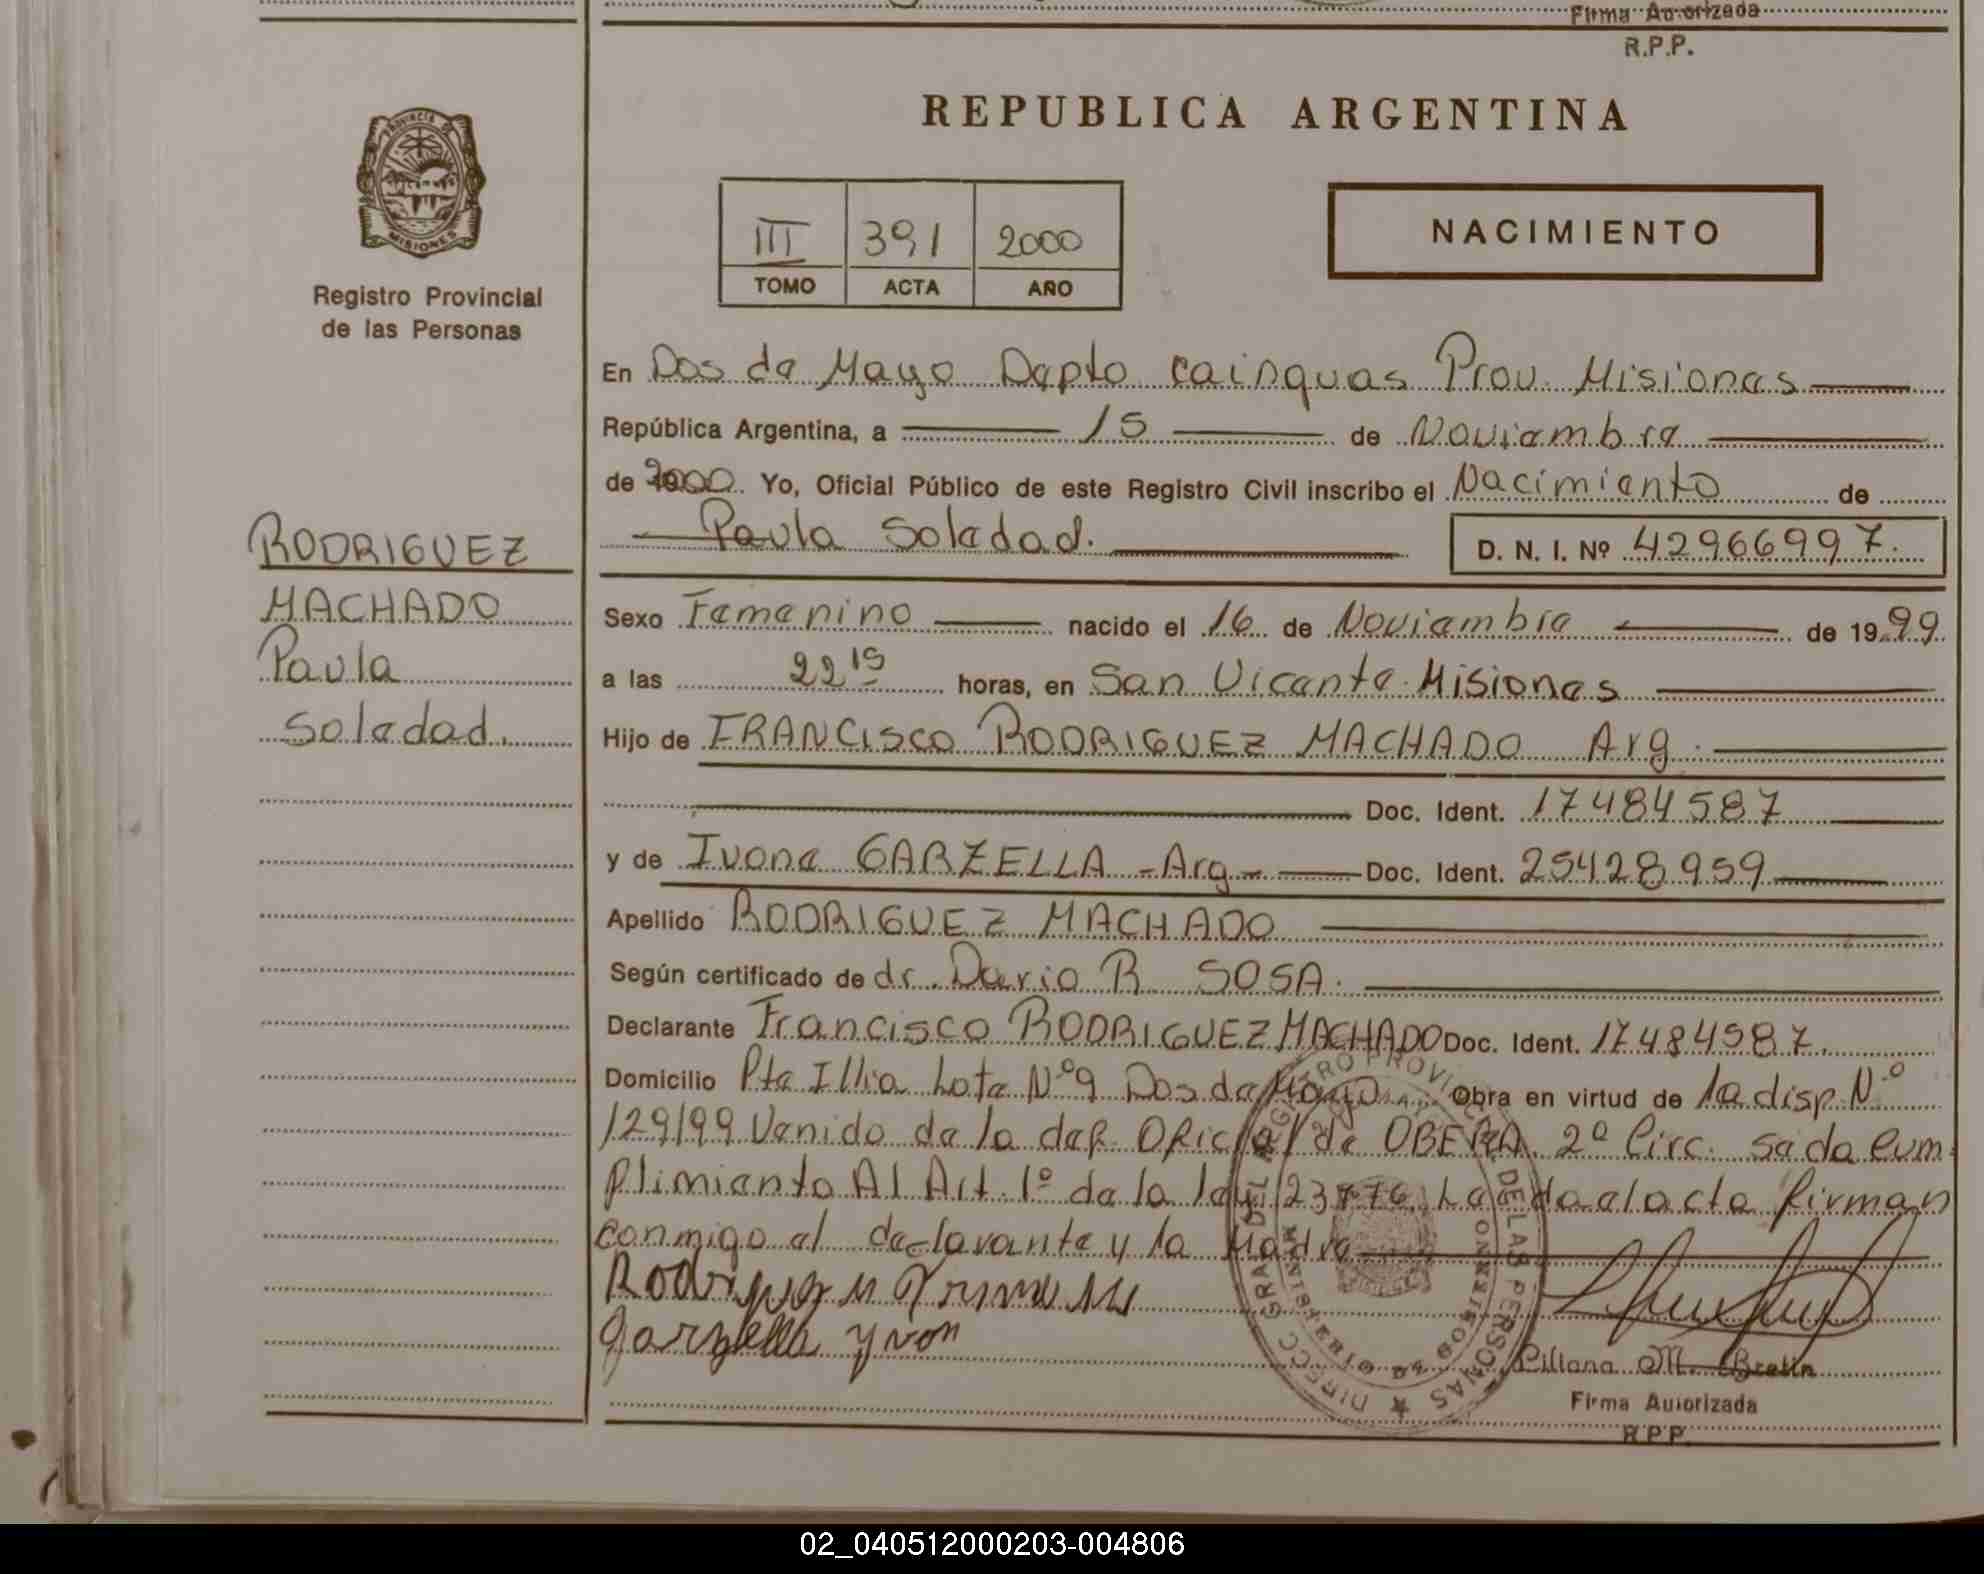 Firma Autorizada
R.P.P.
PROVINCIA DE
MISIONES
Registro Provincial
de las Personas
REPUBLICA ARGENTINA
III 391 2000
TOMO ACTA AÑO
NACIMIENTO
En Dos de Mayo Dapto Cainguas Prov. Misiones
República Argentina, a 15 de Noviembre
de 2000. Yo, Oficial Público de este Registro Civil inscribo el Nacimiento de
Paula Soledad.
D. N. I. Nº 42966997.
RODRIGUEZ
MACHADO
Paula
Soledad.
Sexo Femenino nacido el 16 de Noviembre de 1999
a las 22 15 horas, en San Vicente Misiones
Hijo de FRANCISCO RODRIGUEZ MACHADO Arg.
Doc. Ident. 17484587
y de Ivone GARZELLA - Arg - Doc. Ident. 25428959
Apellido RODRIGUEZ MACHADO
Según certificado de dr. Dario R. SOSA.
Declarante Francisco RODRIGUEZ MACHADO Doc. Ident. 17484587.
Domicilio Pte Illia Lote Nº9 Dos de Mayo Obra en virtud de la disp. Nº
129/99 Venido de la dep. Oficial de OBERA 2ª Circ. se da cum
plimiento Al Art. 1º de la ley 23776 Leida el acta firman
conmigo el declarante y la Madre
Garzella yvon
Liliana M. Bretin
Firma Autorizada
R.P.P.
DIRECC GRAL DEL REGISTRO PROVINCIAL DE LAS PERSONAS
MINISTERIO DE GOBIERNO
02_040512000203-004806